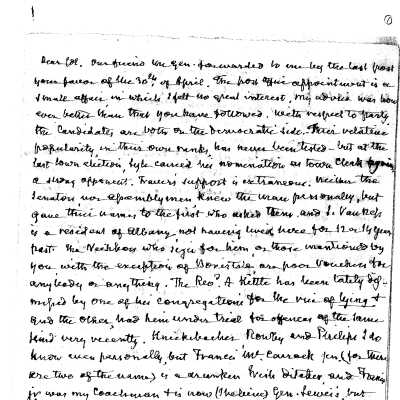 Dear Col. Our friend the Gen. forwarded to me by the last post
your favor of the 30th of April. The post office appointment is a
small affair in which I felt no great interest. My advice was however
even better than that you have followed. With respect to party
the Candidates are both on the democratic side. Their relative
popularity in their own ranks, has never been tested but at the
last town election, Lyle carried his nomination as town Clerk again
a strong opponent. Travers support is extraneous. Neither the
Senator nor assemblymen knew the man personally, but
gave their names to the first who asked them and
is a resident of Albany not having lived here for 12 or 14 years
past. The Neighbors who sign for him or those mentioned by
you with the exception of are poor vouchers for
anybody or anything. The Revd. A Kettle has been lately dis-
missed by one of his congregations for the vice of lying &
and the other, had him under trial for offences of the same
kind very recently. Knickerbacker Rowley and Phelps I do
know even personally, but Francis Mc. jun (for there
are two of the name) is a drunken Irish ditcher and
jr was my Coachman & is now (I believe) Gen. Lewis's, but